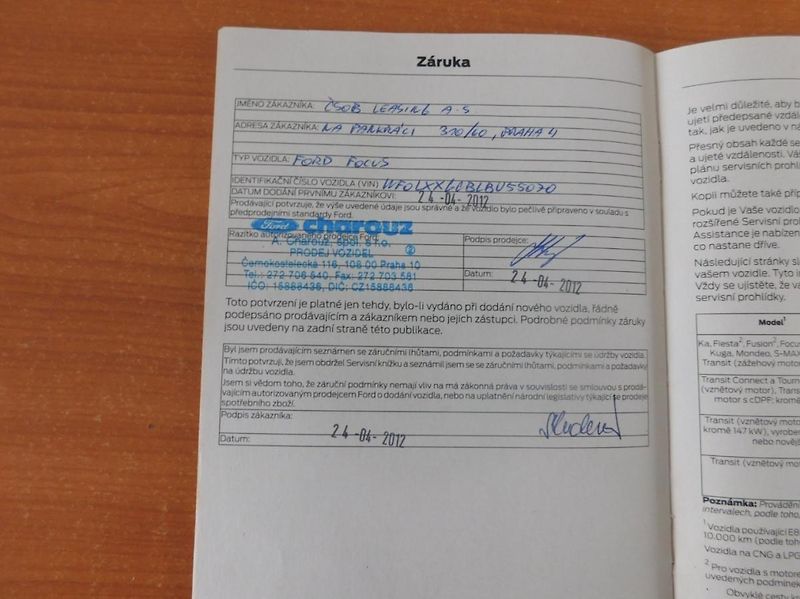 Záruka
JMÉNO ZÁKAZNÍKA: ČSOB LEASING A.S.
ADRESA ZÁKAZNÍKA: NA PANKRÁCI 310/60, PRAHA 4
TYP VOZIDLA: FORD FOCUS
IDENTIFIKAČNÍ ČÍSLO VOZIDLA (VIN)
DATUM DODÁNÍ PRVNÍMU ZÁKAZNÍKOVI: 24-04-2012
Prodávající potvrzuje, že výše uvedené údaje jsou správné a že vozidlo bylo pečlivě připraveno v souladu s
předprodejními standardy Ford.
Ford charouz
Razítko autorizovaného prodejce Ford:
A. Charouz, spol. s r.o.
PRODEJ VOZIDEL 2
Černokostelecká 116, 108 00 Praha 10
Tel.: 272 706 540, Fax: 272 703 581
IČO: 15888436, DIČ: CZ15888436
Podpis prodejce:
Datum: 24-04-2012
Toto potvrzení je platné jen tehdy, bylo-li vydáno při dodání nového vozidla, řádně
podepsáno prodávajícím a zákazníkem nebo jejich zástupci. Podrobné podmínky záruky
jsou uvedeny na zadní straně této publikace.
Byl jsem prodávajícím seznámen se záručními lhůtami, podmínkami a požadavky týkajícími se údržby vozidla.
Tímto potvrzuji, že jsem obdržel Servisní knížku a seznámil jsem se se záručními lhůtami, podmínkami a požadavky
na údržbu vozidla.
Jsem si vědom toho, že záruční podmínky nemají vliv na má zákonná práva v souvislosti se smlouvou s prodá-
vajícím autorizovaným prodejcem Ford o dodání vozidla, nebo na uplatnění národní legislativy týkající se prodeje
spotřebního zboží.
Podpis zákazníka:
Datum: 24-04-2012
Je velmi důležité, aby b
ujetí předepsané vzdál
tak, jak je uvedeno v n
Přesný obsah každé se
a ujeté vzdálenosti. Vá
plánu servisních prohlí
vozidla.
Kopii můžete také přip
Pokud je Vaše vozidlo
rozšířené Servisní pro
Assistance je nabízen
co nastane dříve.
Následující stránky sl
vašem vozidle. Tyto i
Vždy se ujistěte, že va
servisní prohlídky.
Model1
Ka, Fiesta2, Fusion2, Focu
Kuga, Mondeo, S-MAX
Transit (zážehový motor
Transit Connect a Tourn
(vznětový motor), Trans
motor s cDPF: kromě
Transit (vznětový moto
kromě 147 kW), vyrobe
nebo nověj
Transit (vznětový mot
Poznámka: Provádění
intervalech, podle toho,
1 Vozidla používající E8
10.000 km (podle toho
Vozidla na CNG a LPG
2 Pro vozidla s motore
uvedených podmínek
Obvyklé cesty k